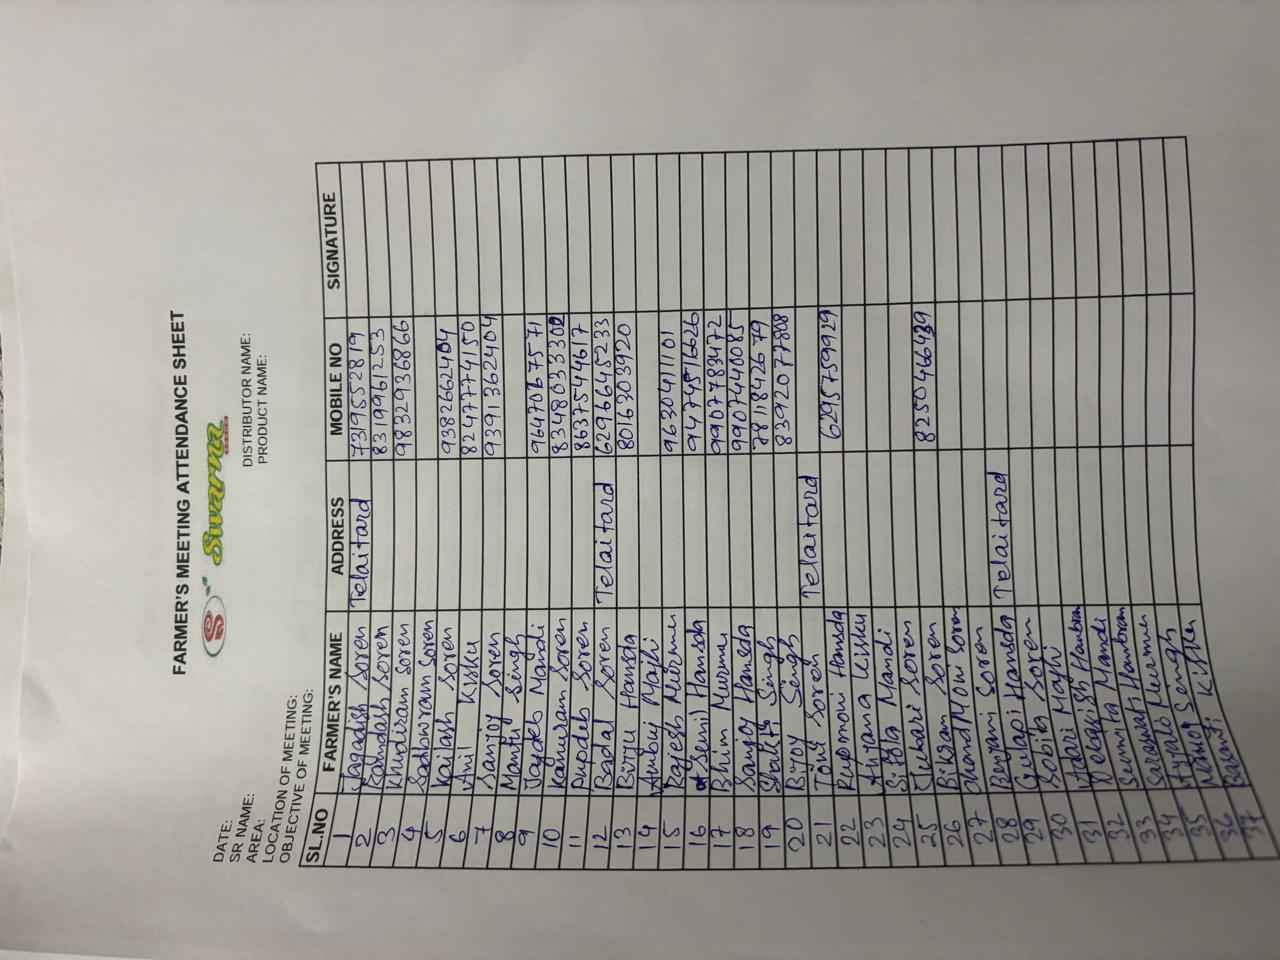 FARMER'S MEETING ATTENDANCE SHEET
S Swarna
DATE:
SR NAME: DISTRIBUTOR NAME:
AREA: PRODUCT NAME:
LOCATION OF MEETING:
OBJECTIVE OF MEETING:
SL.NO FARMER'S NAME ADDRESS MOBILE NO SIGNATURE
1 Jagadish Soren Telaitard 7319552819
2 Ramdash Soren 8319961253
3 Khudiram Soren 9832936866
4 Sadhwiram Soren
5 Kailash Soren 9382662404
6 Anil Kisku 8247774150
7 Sanjoy Soren 9391362404
8 Mantu Singh
9 Joydeb Mandi 9647067571
10 Kanuram Soren
11 Rupdeb Soren 8637544617
12 Badal Soren Telaitard 6296645233
13 Biju Hansda 8016303920
14 Ambuj Majhi
15 Rajesh Murmu 9630411101
16 Sunil Hansda 9474516626
17 Bhim Murmu 9907783472
18 Sanjoy Hansda 9907440085
19 Shakti Singh 7811842679
20 Bijoy Singh 8392077808
21 Tony Soren Telaitard
22 Rupmoni Hansda 6295759929
23 Anjana Kisku
24 Sitola Mandi
25 Soren
26 Bikram Soren 8250466439
27 Chand Moni Soren
28 Soren
29 Gulapi Hansda Telaitard
30 Sobita Soren
31 Majhi
32 Hambram
33 Mandi
34 Saraswati Hambram
35 Murmu
36 Manoj Singh
37 Basanti Kisku